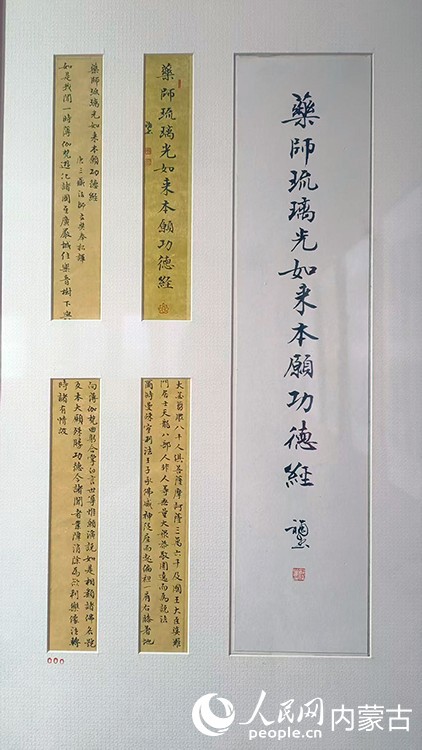 藥師琉璃光如来本願功德經
藥師琉璃光如来本願功德經
藥師琉璃光如来本願功德經
唐三藏法師玄奘奉詔譯
如是我聞一時薄伽梵遊化諸國至廣嚴城住樂音樹下與
大苾芻眾八千人俱菩薩摩訶薩三萬六千及國王大臣婆羅
門居士天龍八部人非人等無量大眾恭敬圍遶而為說法
爾時曼殊室利法王子承佛威神從座而起偏袒一肩右膝著地
向薄伽梵曲躬合掌白言世尊惟願演說如是相類諸佛名號
及本大願殊勝功德令諸聞者業障消除為欲利樂像法轉
時諸有情故
人民网 内蒙古
people.cn